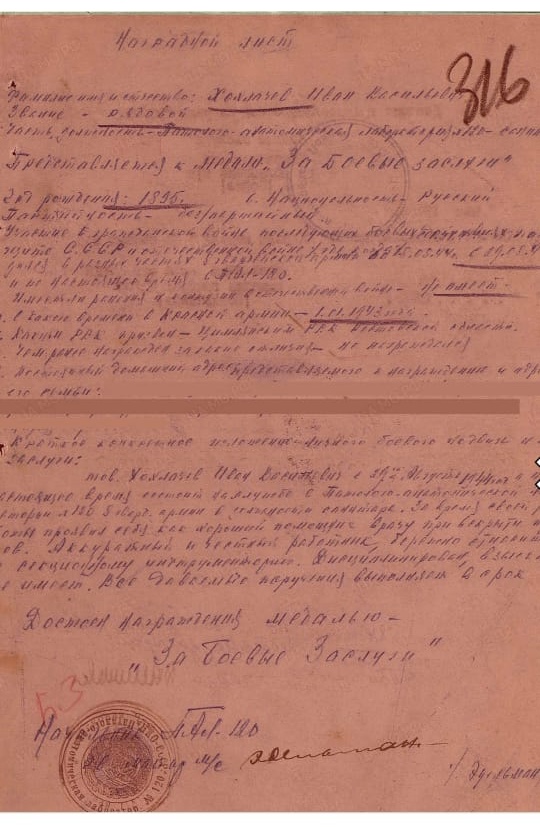 Наградной лист
316
Фамилия имя и отчество: Хохлачов Иван Васильевич
Звание - рядовой
Часть, должность - Патолого-анатомическая лаборатория 120 -
Представляется к медали „За Боевые заслуги"
Год рождения: 1895. Национальность - Русский
Партийность - безпартийный
Участие в гражданской войне, последующих боевых действиях по
щите С.С.С.Р. и отечественной войне
в разных частях
и по настоящее время с ПАЛ-120.
Имеет ли ранения и в отечественной войне - не имеет.
С какого времени в Красной армии - 1.01.1943 года.
Каким РВК призван - Цимлянским РВК Ростовской области.
Чем ранее награжден за какие отличия - не награждался
постоянный домашний адрес представляемого к награждению и адрес
его семьи:
Краткое конкретное изложение личного боевого подвига и
заслуги:
тов. Хохлачов Иван Васильевич с 29го Августа 1944 г. и
время состоит на службе в Патолого-анатомической
№ 120 5 армии в должности санитара. За время своей
работы проявил себя как хороший помощник врачу при вскрытии
Аккуратный и честный работник, бережно относит
к секционному инструментарию. Дисциплинирован, взыс
не имеет. Все даваемые поручения выполняет в срок
Достоен награждения медалью -
"За Боевые Заслуги"
5.3
Начальник ПАЛ-120
майор м/с
/ Эдельман
лаборатор. № 120